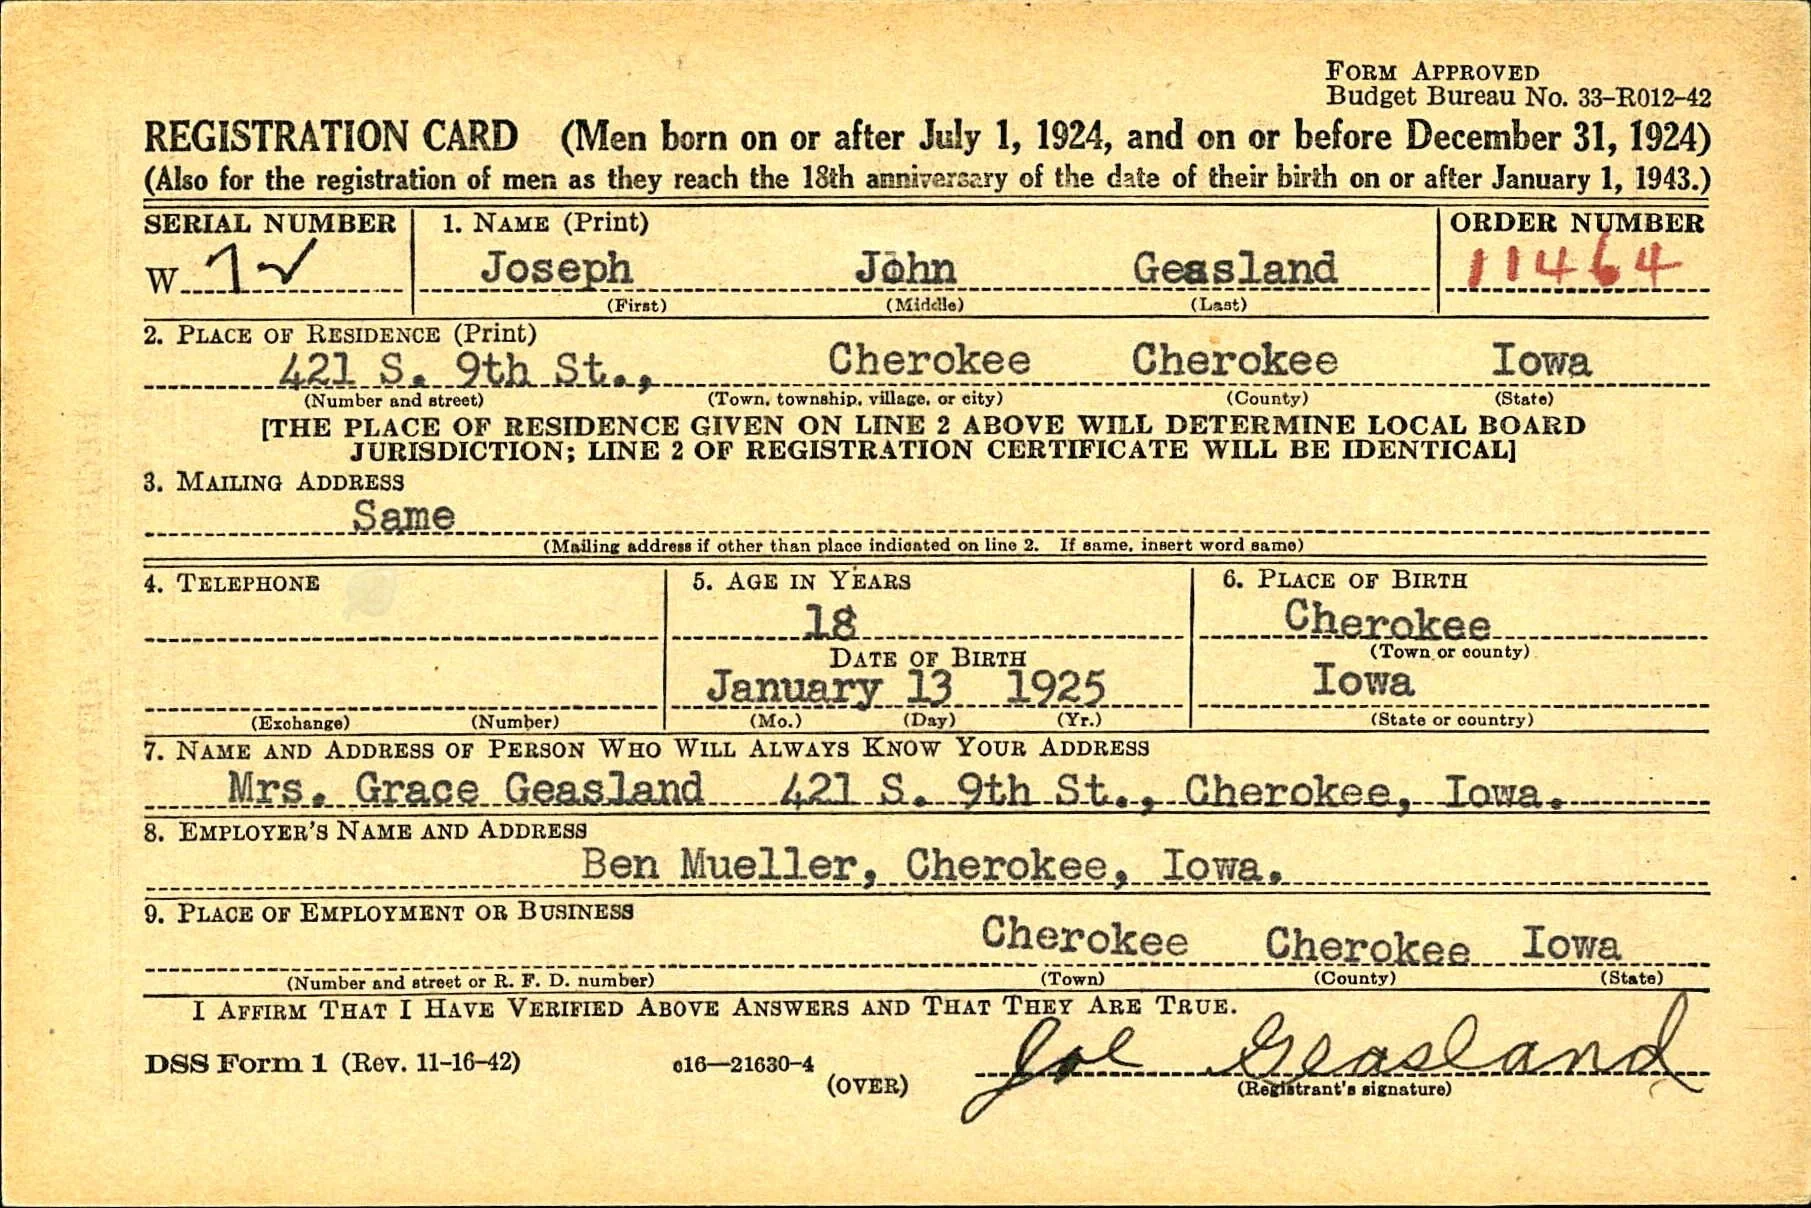 FORM APPROVED
Budget Bureau No. 33-R012-42
REGISTRATION CARD (Men born on or after July 1, 1924, and on or before December 31, 1924)
(Also for the registration of men as they reach the 18th anniversary of the date of their birth on or after January 1, 1943.)
SERIAL NUMBER 1. NAME (Print) ORDER NUMBER
W 7 ✓ Joseph John Geasland 11464
(First) (Middle) (Last)
2. PLACE OF RESIDENCE (Print)
421 S. 9th St., Cherokee Cherokee Iowa
(Number and street) (Town, township, village, or city) (County) (State)
[THE PLACE OF RESIDENCE GIVEN ON LINE 2 ABOVE WILL DETERMINE LOCAL BOARD
JURISDICTION; LINE 2 OF REGISTRATION CERTIFICATE WILL BE IDENTICAL]
3. MAILING ADDRESS
Same
(Mailing address if other than place indicated on line 2. If same, insert word same)
4. TELEPHONE 5. AGE IN YEARS 6. PLACE OF BIRTH
18 Cherokee
DATE OF BIRTH (Town or county)
January 13 1925 Iowa
(Exchange) (Number) (Mo.) (Day) (Yr.) (State or country)
7. NAME AND ADDRESS OF PERSON WHO WILL ALWAYS KNOW YOUR ADDRESS
Mrs. Grace Geasland 421 S. 9th St., Cherokee, Iowa.
8. EMPLOYER'S NAME AND ADDRESS
Ben Mueller, Cherokee, Iowa.
9. PLACE OF EMPLOYMENT OR BUSINESS
Cherokee Cherokee Iowa
(Number and street or R. F. D. number) (Town) (County) (State)
I AFFIRM THAT I HAVE VERIFIED ABOVE ANSWERS AND THAT THEY ARE TRUE.
Joe Geasland
DSS Form 1 (Rev. 11-16-42) c16—21630-4 (OVER) (Registrant's signature)